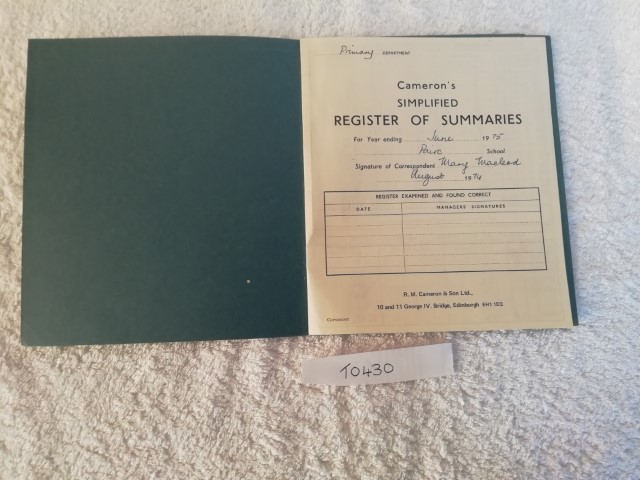 Primary DEPARTMENT
Cameron's
SIMPLIFIED
REGISTER OF SUMMARIES
For Year ending June 1975
Pairc School
Signature of Correspondent Mary Macleod
August 1974
REGISTER EXAMINED AND FOUND CORRECT
DATE MANAGERS SIGNATURES
R. M. Cameron & Son Ltd.,
10 and 11 George IV. Bridge, Edinburgh EH1
COPYRIGHT
T0430